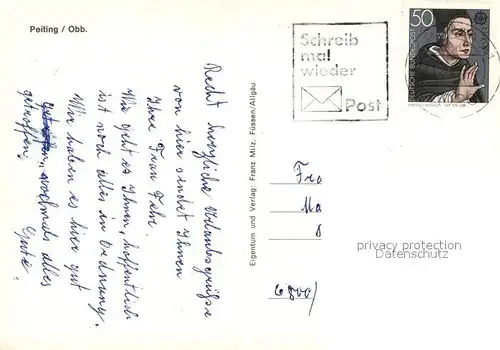 Peiting / Obb.
Recht herzliche Urlaubsgrüße
von hier sendet Ihnen
Ihre Frau
Wie geht es Ihnen, hoffentlich
ist noch alles in Ordnung.
Wir haben es hier gut
getroffen, nochmals alles
getroffen,
Gute!
Eigentum und Verlag: Franz Milz, Füssen/Allgäu
Schreib
mal
wieder
Post
50
DEUTSCHE BUNDESPOST
Fra
Ma
8
6800/
privacy protection
Datenschutz